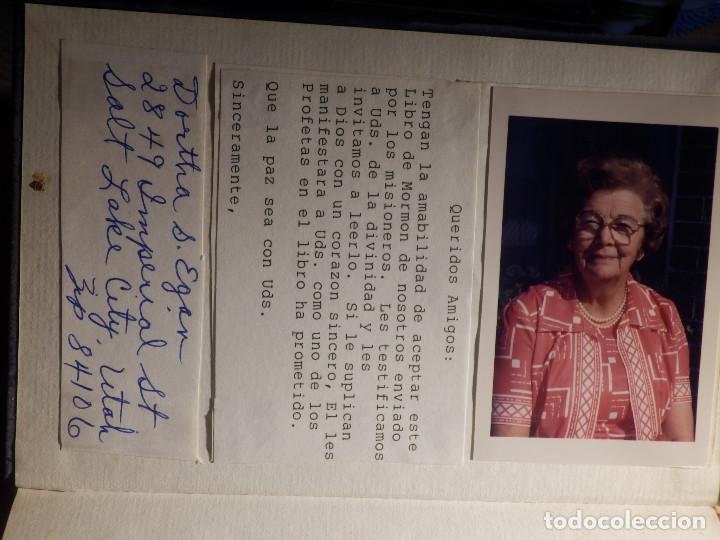 Queridos Amigos:
Tengan la amabilidad de aceptar este
Libro de Mormon de nosotros enviado
por los misioneros. Les testificamos
a Uds. de la divinidad y les
invitamos a leerlo. Si le suplican
a Dios con un corazon sincero, El les
manifestara a Uds. como uno de los
Profetas en el libro ha prometido.
Que la paz sea con Uds.
Sinceramente,
Dortha S. Egan
2849 Imperial St
Salt Lake City, Utah
Zip 84106
todocoleccion